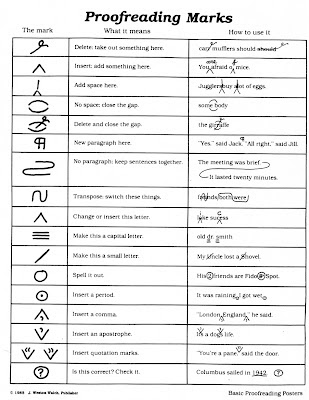 Proofreading Marks
The mark What it means How to use it
Delete: take out something here. car mufflers should should
Insert: add something here. You afraid o mice.
Add space here. Jugglersbuy alot of eggs.
No space: close the gap. some body
Delete and close the gap. the giraffe
New paragraph here. "Yes," said Jack. "All right," said Jill.
No paragraph: keep sentences together. The meeting was brief.
It lasted twenty minutes.
Transpose: switch these things. both were
Change or insert this letter. sucess
Make this a capital letter. old dr. smith
Make this a small letter. My Uncle lost a Shovel.
Spell it out. His 2 friends are Fido & Spot.
Insert a period. It was raining. I got wet.
Insert a comma. "London, England," he said.
Insert an apostrophe. Its a dogs life.
Insert quotation marks. You're a pane, said the door.
? Is this correct? Check it. Columbus sailed in 1942 ?
© 1983 J. Weston Walch, Publisher Basic Proofreading Posters